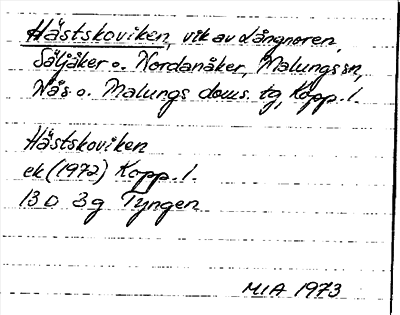 Hästskoviken, vik av Långnoren,
Säljåker o. Nordanåker, Malungs sn,
Nås o. Malungs doms. tg, Kopp. l.
Hästskoviken
ek (1972) Kopp. l.
13 D 3g Tyngen
MIA 1973